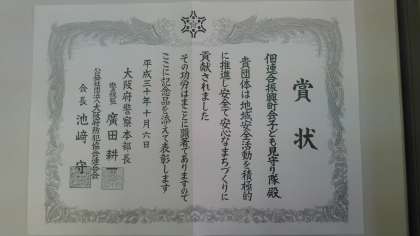 賞状
佃連合振興町会子ども見守り隊 殿
貴団体は地域安全活動を積極的
に推進し安全で安心なまちづくりに
貢献されました
その功労はまことに顕著でありますので
ここに記念品を添えて表彰します
平成三十年十月六日
大阪府警察本部長
警視監 廣田耕一
公益社団法人大阪府防犯協会連合会
会長 池﨑守